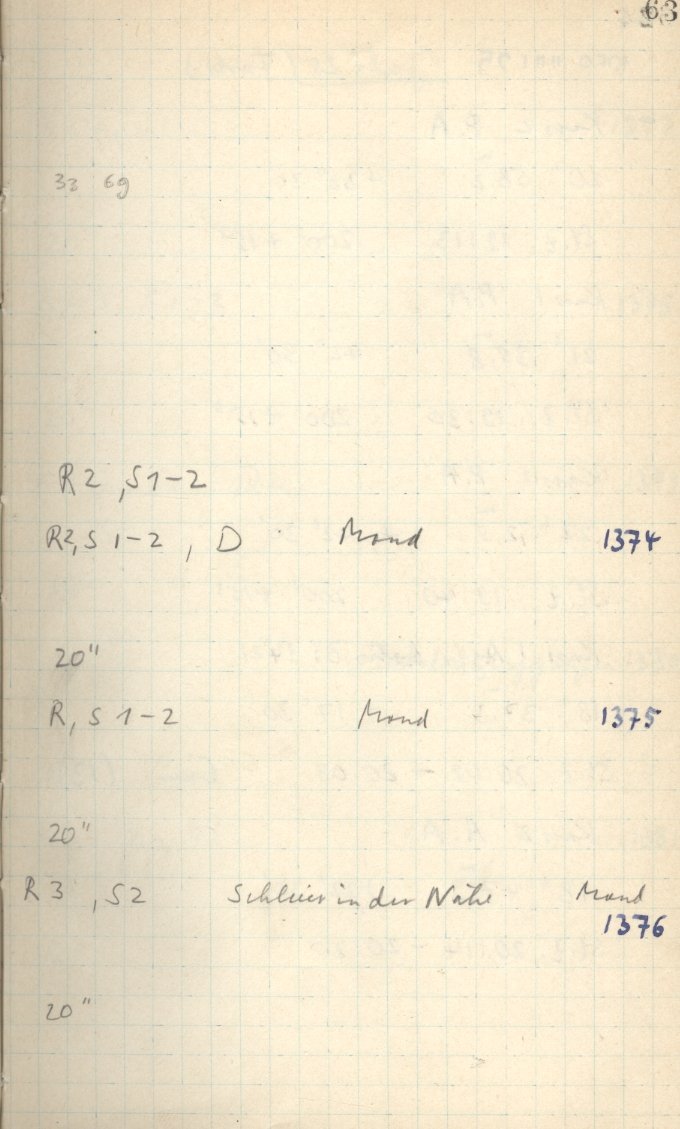 63
33 69
R2, S1-2
R2, S 1-2, D Mond 1374
20"
R, S 1-2 Mond 1375
20"
R 3, S2 Schleier in der Nähe Mond
1376
20"